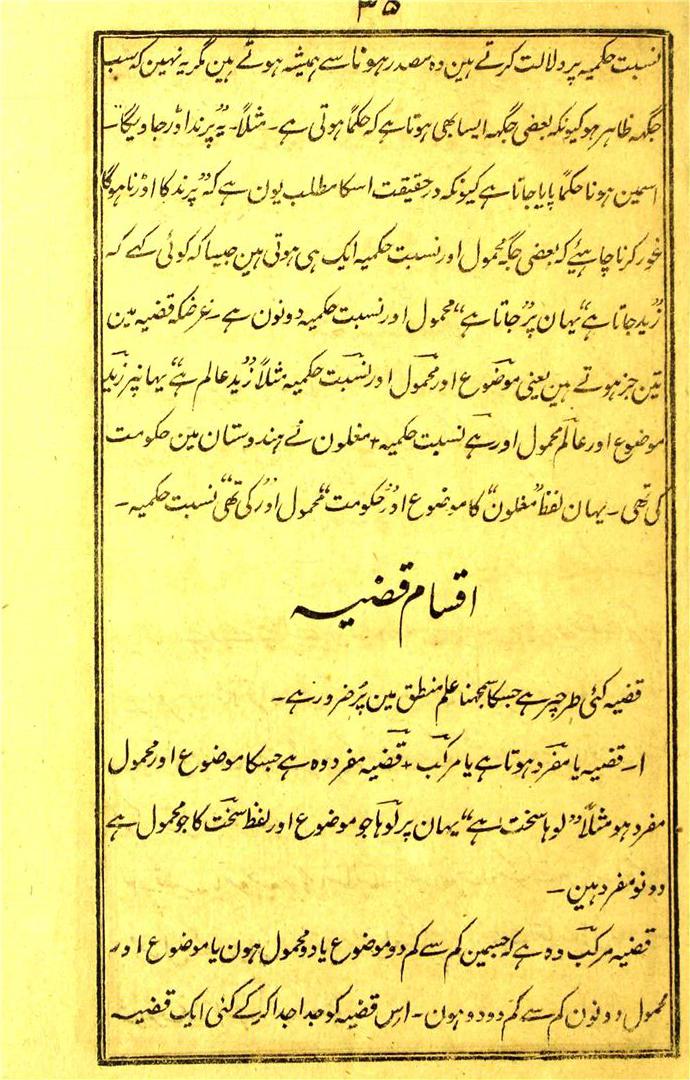 ۳۵
نسبت حکمیہ پر دلالت کرتے ہین وہ مصدر ہونا سے ہمیشہ ہوتے ہین مگر یہ نہین کہ سب
جگہہ ظاہر ہو کیونکہ بعضی جگہہ ایسا بھی ہوتا ہے کہ حکماً ہوتی ہے۔ مثلاً۔ یہ پرند اوڑ جاویگا۔
اسمین ہونا حکماً پایا جاتا ہے کیونکہ درحقیقت اسکا مطلب یون ہے کہ ”پرند کا اوڑنا ہوگا
غور کرنا چاہیئے کہ بعضی جگہ محمول اور نسبت حکمیہ ایک ہی ہوتی ہین جیسا کہ کوئی کہے کہ
”زید جاتا ہے“ یہان پر ”جاتا ہے“ محمول اور نسبت حکمیہ دونون ہے۔ غرضکہ قضیہ مین
تین جز ہوتے ہین یعنی موضوع اور محمول اور نسبت حکمیہ مثلاً ”زید عالم ہے“ یہانپر زید
موضوع اور عالم محمول اور ہے نسبت حکمیہ + مغلون نے ہندوستان مین حکومت
کی تھی۔ یہان لفظ ”مغلون“ کا موضوع اور ”حکومت“ محمول اور ”کی تھی“ نسبت حکمیہ۔
اقسام قضیہ
قضیہ کئی طرحپر ہے جسکا سمجھنا علم منطق مین پُر ضرور ہے۔
۱۔ قضیہ یا مفرد ہوتا ہے یا مرکب + قضیہ مفرد وہ ہے جسکا موضوع اور محمول
مفرد ہو مثلاً ”لوہا سخت ہے“ یہان پر لوہا جو موضوع اور لفظ سخت کا جو محمول ہے
دونو مفرد ہین۔
قضیہ مرکب وہ ہے کہ جسمین کم سے کم دو موضوع یا دو محمول ہون یا موضوع اور
محمول دونون کم سے کم دو دو ہون۔ اس قضیہ کو جدا جدا کرکے کئی ایک قضیہ